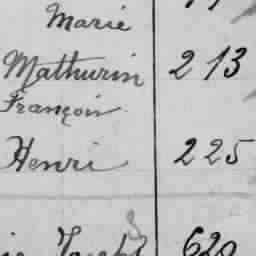 Marie
Mathurin 213
François
Henri 225
620